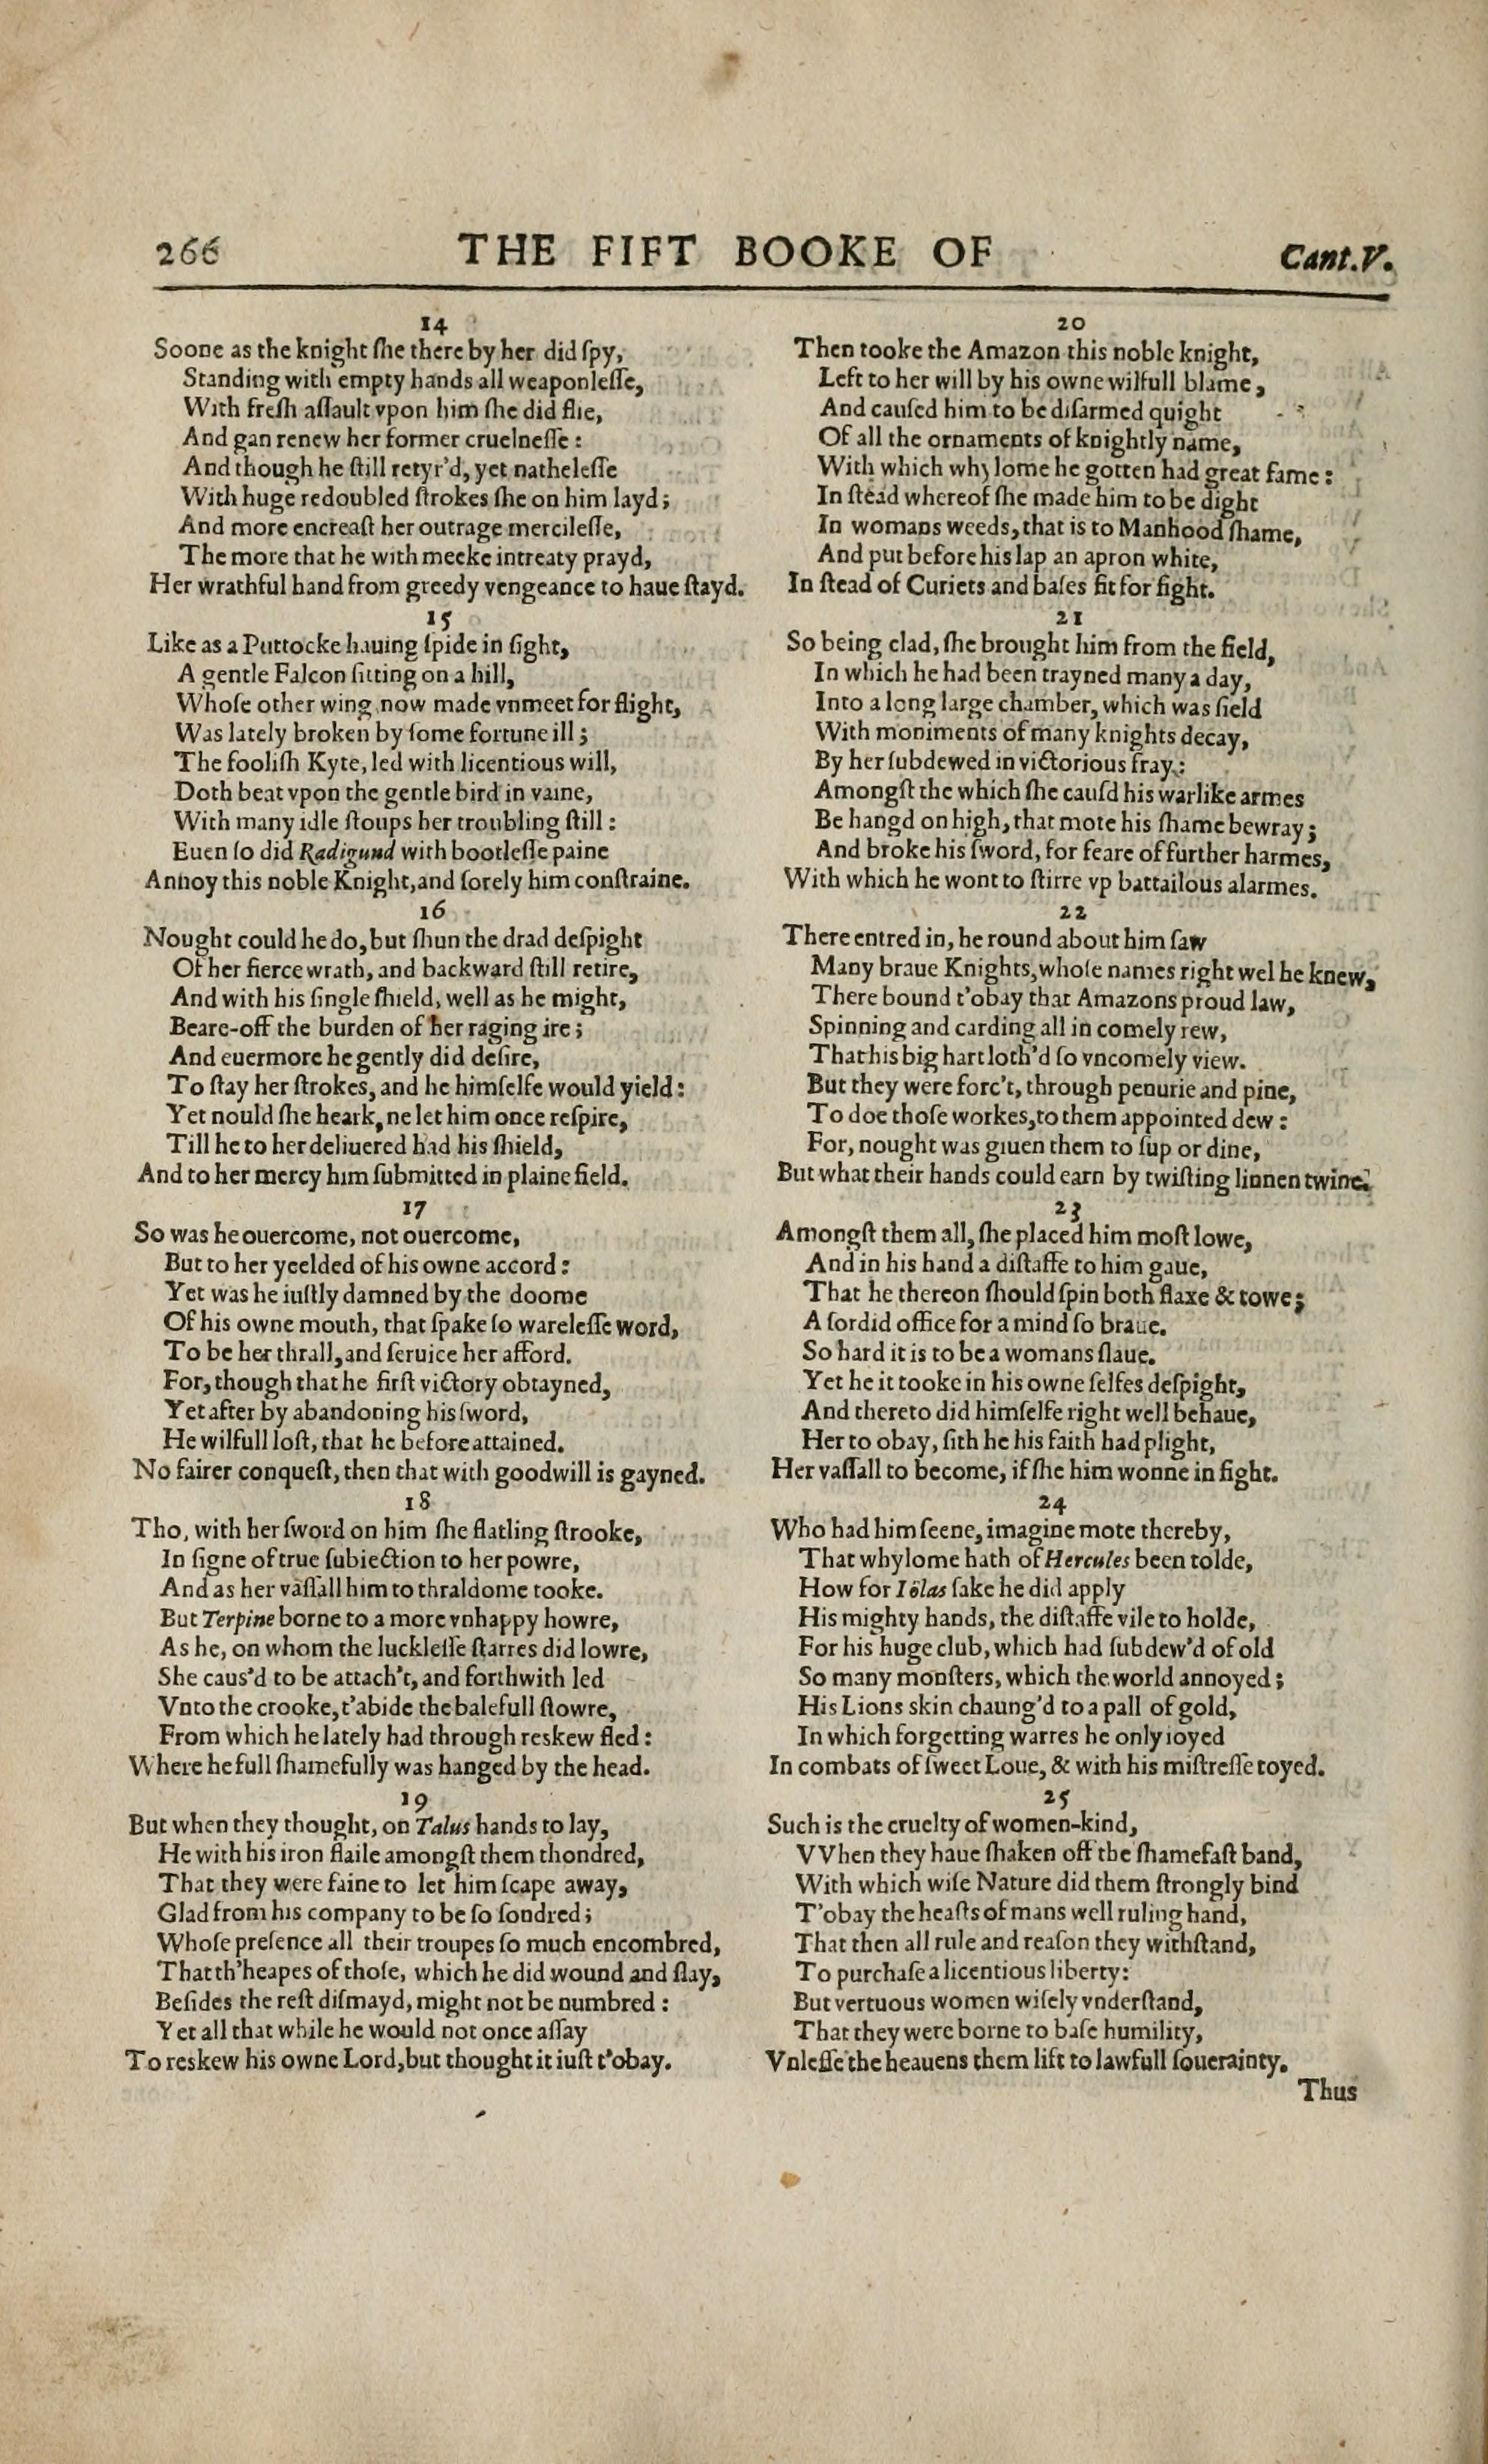 266 THE FIFT BOOKE OF Cant.V.
14
Soone as the knight ſhe there by her did ſpy,
Standing with empty hands all weaponleſſe,
With freſh aſſault vpon him ſhe did flie,
And gan renew her former cruelneſſe:
And though he ſtill retyr'd, yet natheleſſe
With huge redoubled ſtrokes ſhe on him layd;
And more encreaſt her outrage mercileſſe,
The more that he with meeke intreaty prayd,
Her wrathful hand from greedy vengeance to haue ſtayd.
15
Like as a Puttocke hauing ſpide in ſight,
A gentle Falcon ſitting on a hill,
Whoſe other wing now made vnmeet for flight,
Was lately broken by ſome fortune ill;
The fooliſh Kyte, led with licentious will,
Doth beat vpon the gentle bird in vaine,
With many idle ſtoups her troubling ſtill:
Euen ſo did Radigund with bootleſſe paine
Annoy this noble Knight, and ſorely him conſtraine.
16
Nought could he do, but ſhun the drad deſpight
Of her fierce wrath, and backward ſtill retire,
And with his ſingle ſhield, well as he might,
Beare-off the burden of her raging ire;
And euermore he gently did deſire,
To ſtay her ſtrokes, and he himſelfe would yield:
Yet nould ſhe heark, ne let him once reſpire,
Till he to her deliuered had his ſhield,
And to her mercy him ſubmitted in plaine field.
17
So was he ouercome, not ouercome,
But to her yeelded of his owne accord:
Yet was he iuſtly damned by the doome
Of his owne mouth, that ſpake ſo wareleſſe word,
To be her thrall, and ſeruice her afford.
For, though that he firſt victory obtayned,
Yet after by abandoning his ſword,
He wilfull loſt, that he before attained.
No fairer conqueſt, then that with goodwill is gayned.
18
Tho, with her ſword on him ſhe flatling ſtrooke,
In ſigne of true ſubiection to her powre,
And as her vaſſall him to thraldome tooke.
But Terpine borne to a more vnhappy howre,
As he, on whom the luckleſſe ſtarres did lowre,
She caus'd to be attach't, and forthwith led
Vnto the crooke, t'abide the balefull ſtowre,
From which he lately had through reskew fled:
Where he full ſhamefully was hanged by the head.
19
But when they thought, on Talus hands to lay,
He with his iron flaile amongſt them thondred,
That they were faine to let him ſcape away,
Glad from his company to be ſo ſondred;
Whoſe preſence all their troupes ſo much encombred,
That th'heapes of thoſe, which he did wound and ſlay,
Beſides the reſt diſmayd, might not be numbred:
Yet all that while he would not once aſſay
To reskew his owne Lord, but thought it iuſt t'obay.
20
Then tooke the Amazon this noble knight,
Left to her will by his owne wilfull blame,
And cauſed him to be diſarmed quight
Of all the ornaments of knightly name,
With which whylome he gotten had great fame:
In ſtead whereof ſhe made him to be dight
In womans weeds, that is to Manhood ſhame,
And put before his lap an apron white,
In ſtead of Curiets and baſes fit for fight.
21
So being clad, ſhe brought him from the field,
In which he had been trayned many a day,
Into a long large chamber, which was ſield
With moniments of many knights decay,
By her ſubdewed in victorious fray:
Amongſt the which ſhe cauſd his warlike armes
Be hangd on high, that mote his ſhame bewray;
And broke his ſword, for feare of further harmes,
With which he wont to ſtirre vp battailous alarmes.
22
There entred in, he round about him ſaw
Many braue Knights, whoſe names right wel he knew,
There bound t'obay that Amazons proud law,
Spinning and carding all in comely rew,
That his big hart loth'd ſo vncomely view.
But they were forc't, through penurie and pine,
To doe thoſe workes, to them appointed dew:
For, nought was giuen them to ſup or dine,
But what their hands could earn by twiſting linnen twine.
23
Amongſt them all, ſhe placed him moſt lowe,
And in his hand a diſtaffe to him gaue,
That he thereon ſhould ſpin both flaxe & towe;
A ſordid office for a mind ſo braue.
So hard it is to be a womans ſlaue.
Yet he it tooke in his owne ſelfes deſpight,
And thereto did himſelfe right well behaue,
Her to obay, ſith he his faith had plight,
Her vaſſall to become, if ſhe him wonne in fight.
24
Who had him ſeene, imagine mote thereby,
That whylome hath of Hercules been tolde,
How for Iölas ſake he did apply
His mighty hands, the diſtaffe vile to holde,
For his huge club, which had ſubdew'd of old
So many monſters, which the world annoyed;
His Lions skin chaung'd to a pall of gold,
In which forgetting warres he only ioyed
In combats of ſweet Loue, & with his miſtreſſe toyed.
25
Such is the cruelty of women-kind,
VVhen they haue ſhaken off the ſhamefaſt band,
With which wiſe Nature did them ſtrongly bind
T'obay the heaſts of mans well ruling hand,
That then all rule and reaſon they withſtand,
To purchaſe a licentious liberty:
But vertuous women wiſely vnderſtand,
That they were borne to baſe humility,
Vnleſſe the heauens them lift to lawfull ſouerainty.
Thus